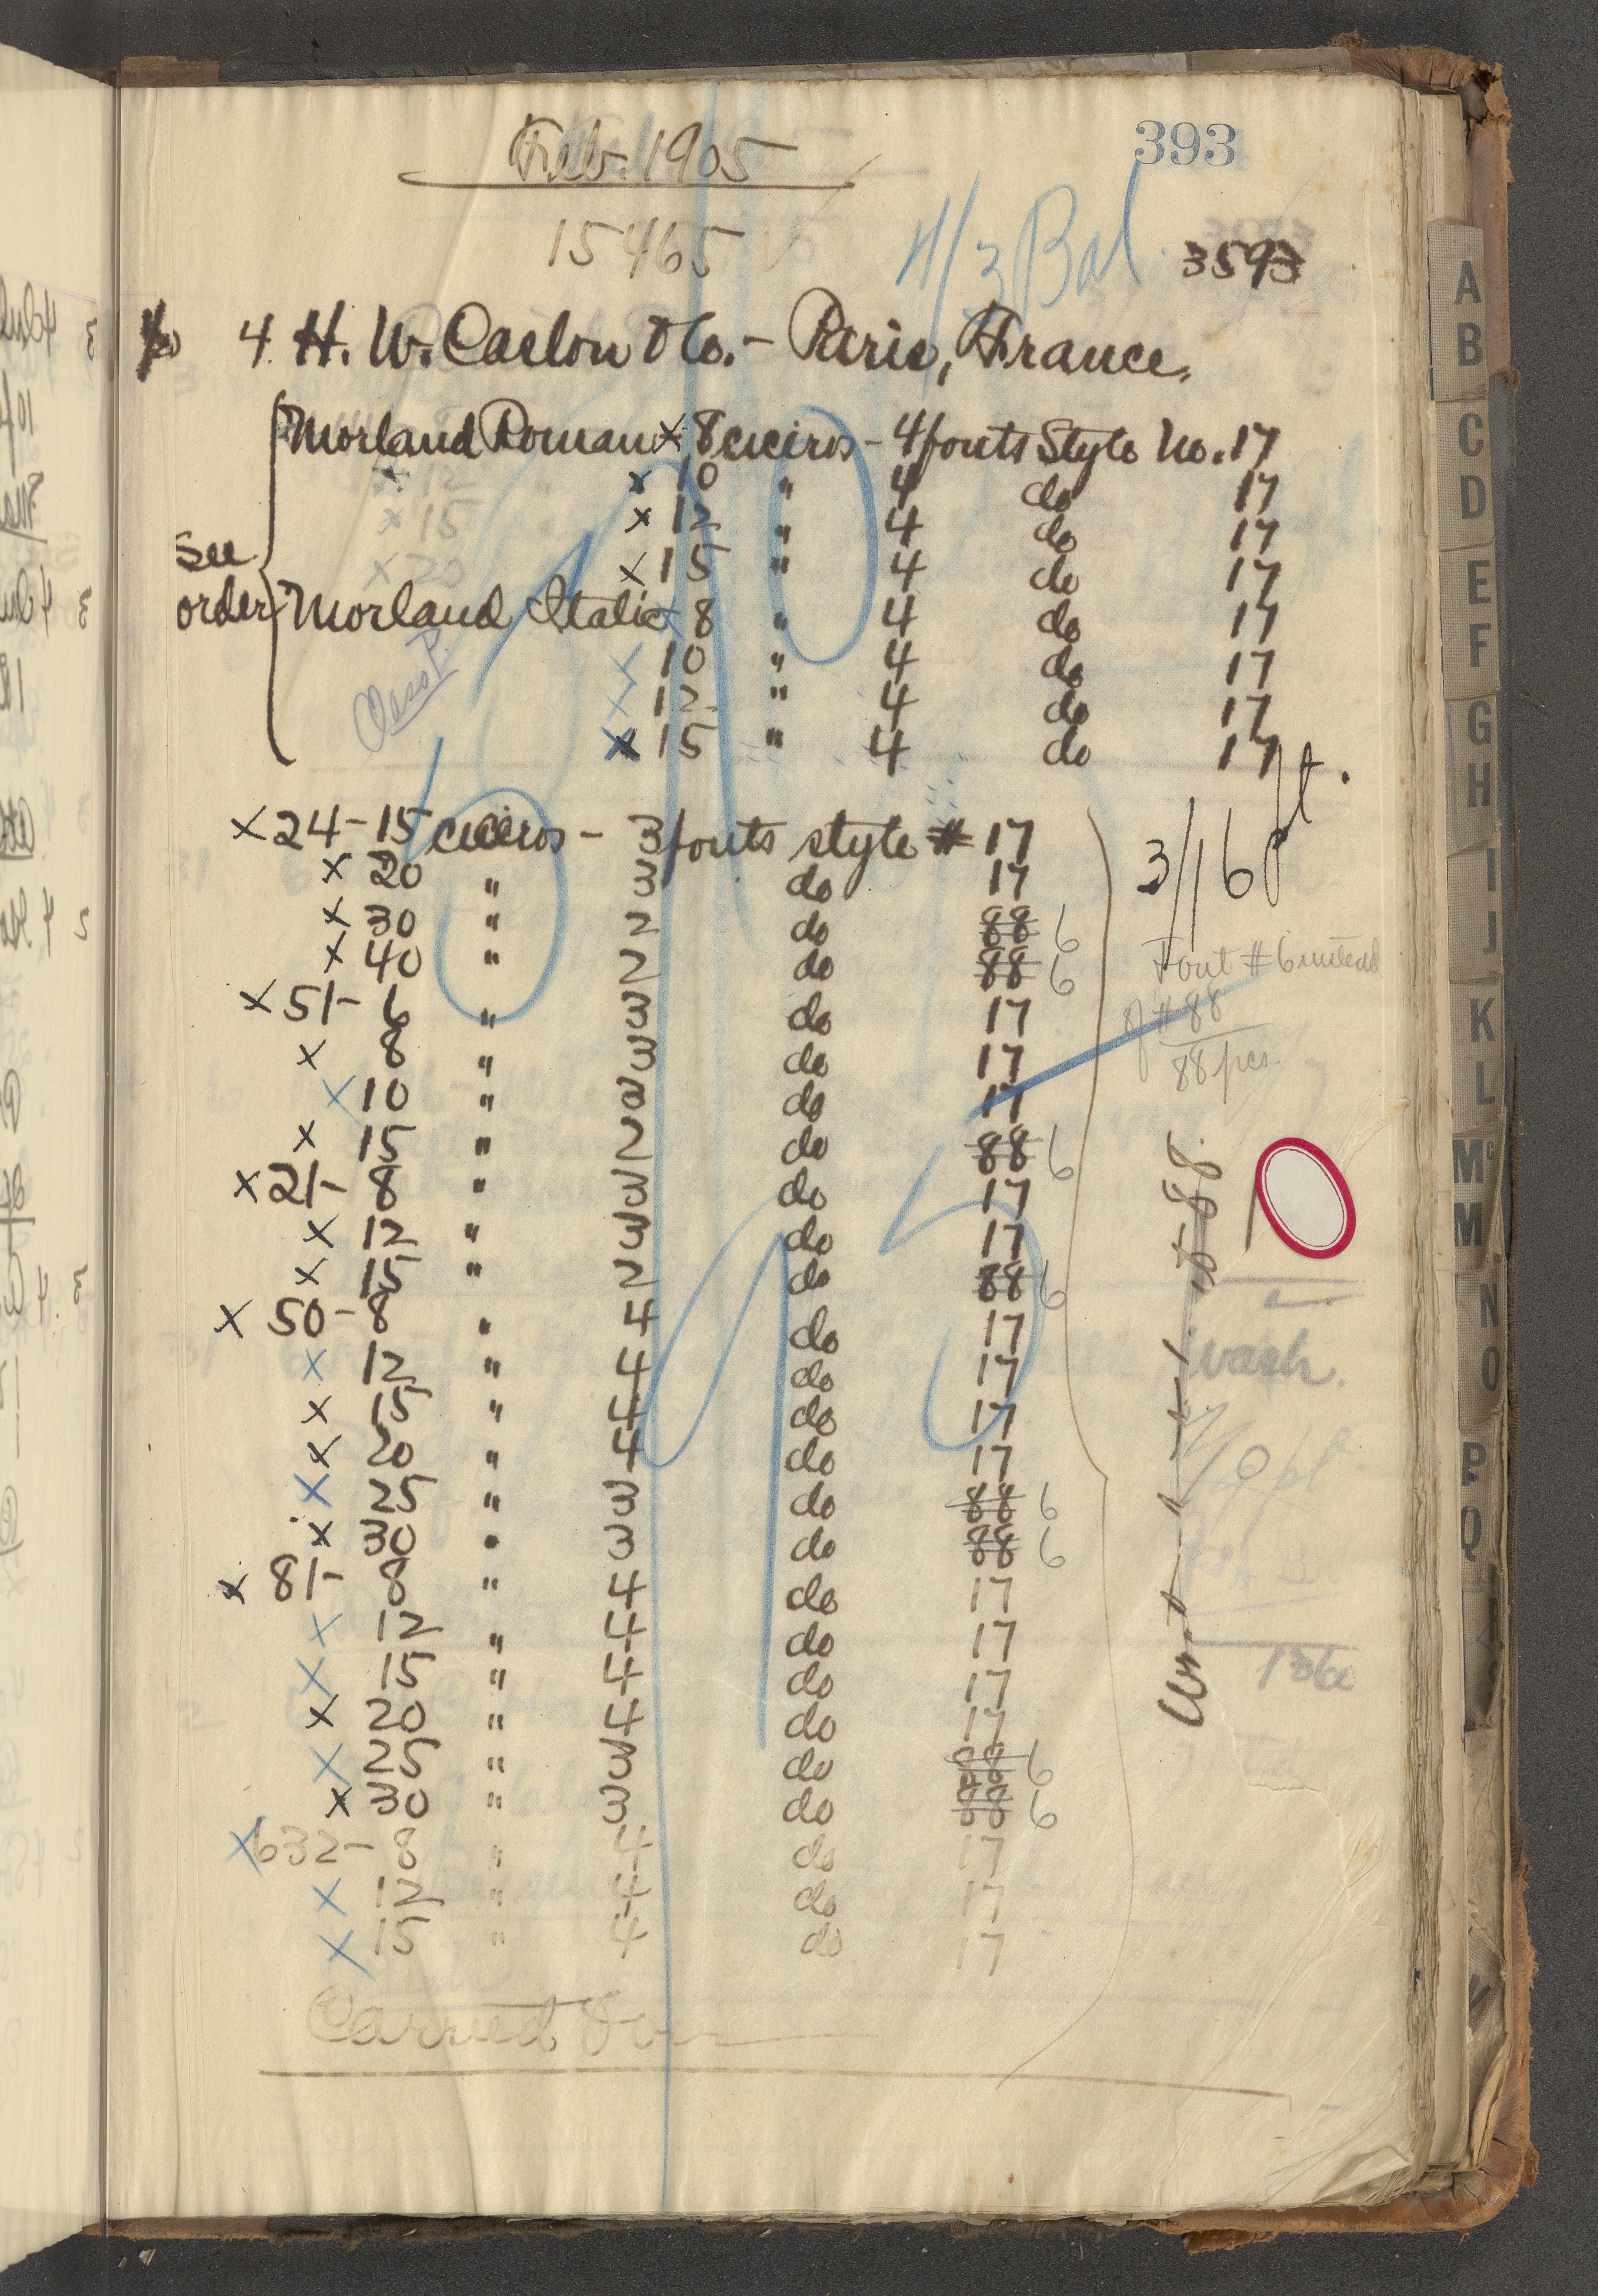 393
Feb. 1905
15465
4/3 Bal.
3593
4 H. W. Caslon & Co. - Paris, France.
Morland Roman x 8 ciceros - 4 fonts Style No. 17
x 10 " 4 do 17
x 12 " 4 do 17
x 15 " 4 do 17
See
order
Morland Italic x 8 " 4 do 17
x 10 " 4 do 17
x 12 " 4 do 17
x 15 " 4 do 17
x 24 - 15 ciceros - 3 fonts style # 17
x 20 " 3 do 17
x 30 " 2 do 88 6
x 40 " 2 do 88 6
x 51 - 6 " 3 do 17
x 8 " 3 do 17
x 10 " 3 do 17
x 15 " 2 do 88 6
x 21 - 8 " 3 do 17
x 12 " 3 do 17
x 15 " 2 do 88 6
x 50 - 8 " 4 do 17
x 12 " 4 do 17
x 15 " 4 do 17
x 20 " 4 do 17
x 25 " 3 do 88 6
x 30 " 3 do 88 6
x 81 - 8 " 4 do 17
x 12 " 4 do 17
x 15 " 4 do 17
x 20 " 4 do 17
x 25 " 3 do 88 6
x 30 " 3 do 88 6
x 632 - 8 " 4 do 17
x 12 " 4 do 17
x 15 " 4 do 17
Carried Over
3/16 pt.
Font # 6 instead
of # 88
88 pcs.
wash.
A
B
C
D
E
F
G
H
I
J
K
L
Mc
M
N
O
P
Q